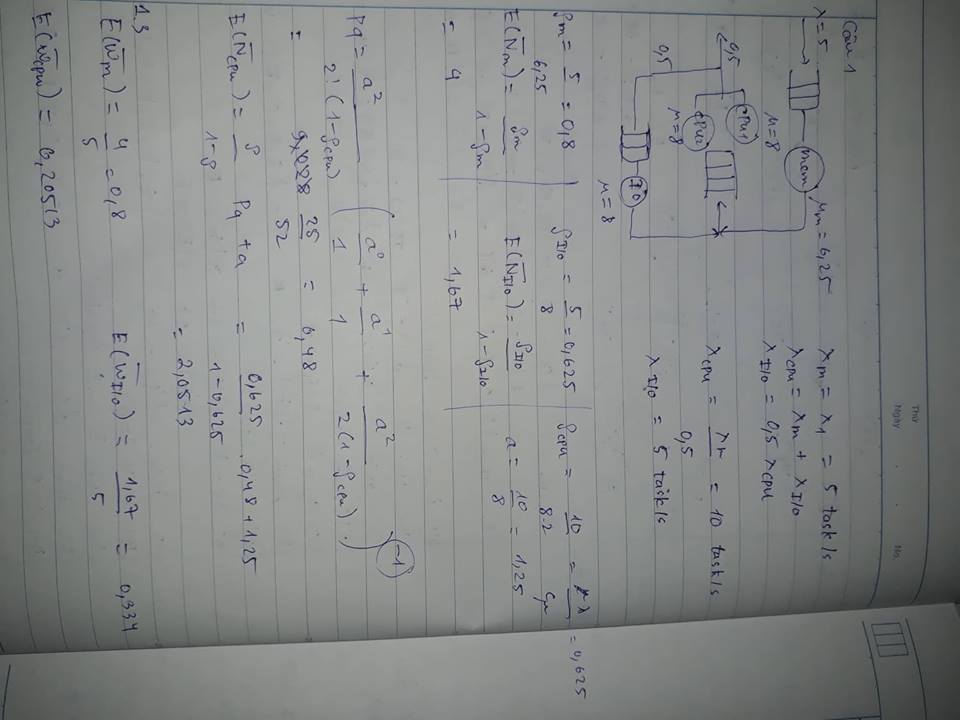 Thứ
Ngày . . No.
Câu 1
λ = 5
μm = 6,25
mem
μ = 8
CPU1
0,5
CPU2
μ = 8
0,5
I/O
μ = 8
λm = λ1 = 5 task/s
λCPU = λm + λI/O
λI/O = 0,5 λCPU
λCPU = λm / 0,5 = 10 task/s
λI/O = 5 task/s
ρm = 5 / 6,25 = 0,8
E(N̄m) = ρm / (1 - ρm)
= 4
ρI/O = 5 / 8 = 0,625
E(N̄I/O) = ρI/O / (1 - ρI/O)
= 1,67
ρCPU = 10 / 8.2 = λ / cμ = 0,625
a = 10 / 8 = 1,25
Pq = a² / 2! (1 - ρCPU) ( a⁰ / 1 + a¹ / 1 + a² / 2 (1 - ρCPU) . )⁻¹
= 25 / 52 = 0,48
E(N̄CPU) = ρ / (1 - ρ) Pq + a = 0,625 / (1 - 0,625) . 0,48 + 1,25
= 2,0513
1.3
E(W̄m) = 4 / 5 = 0,8
E(W̄I/O) = 1,67 / 5 = 0,334
E(W̄CPU) = 0,20513